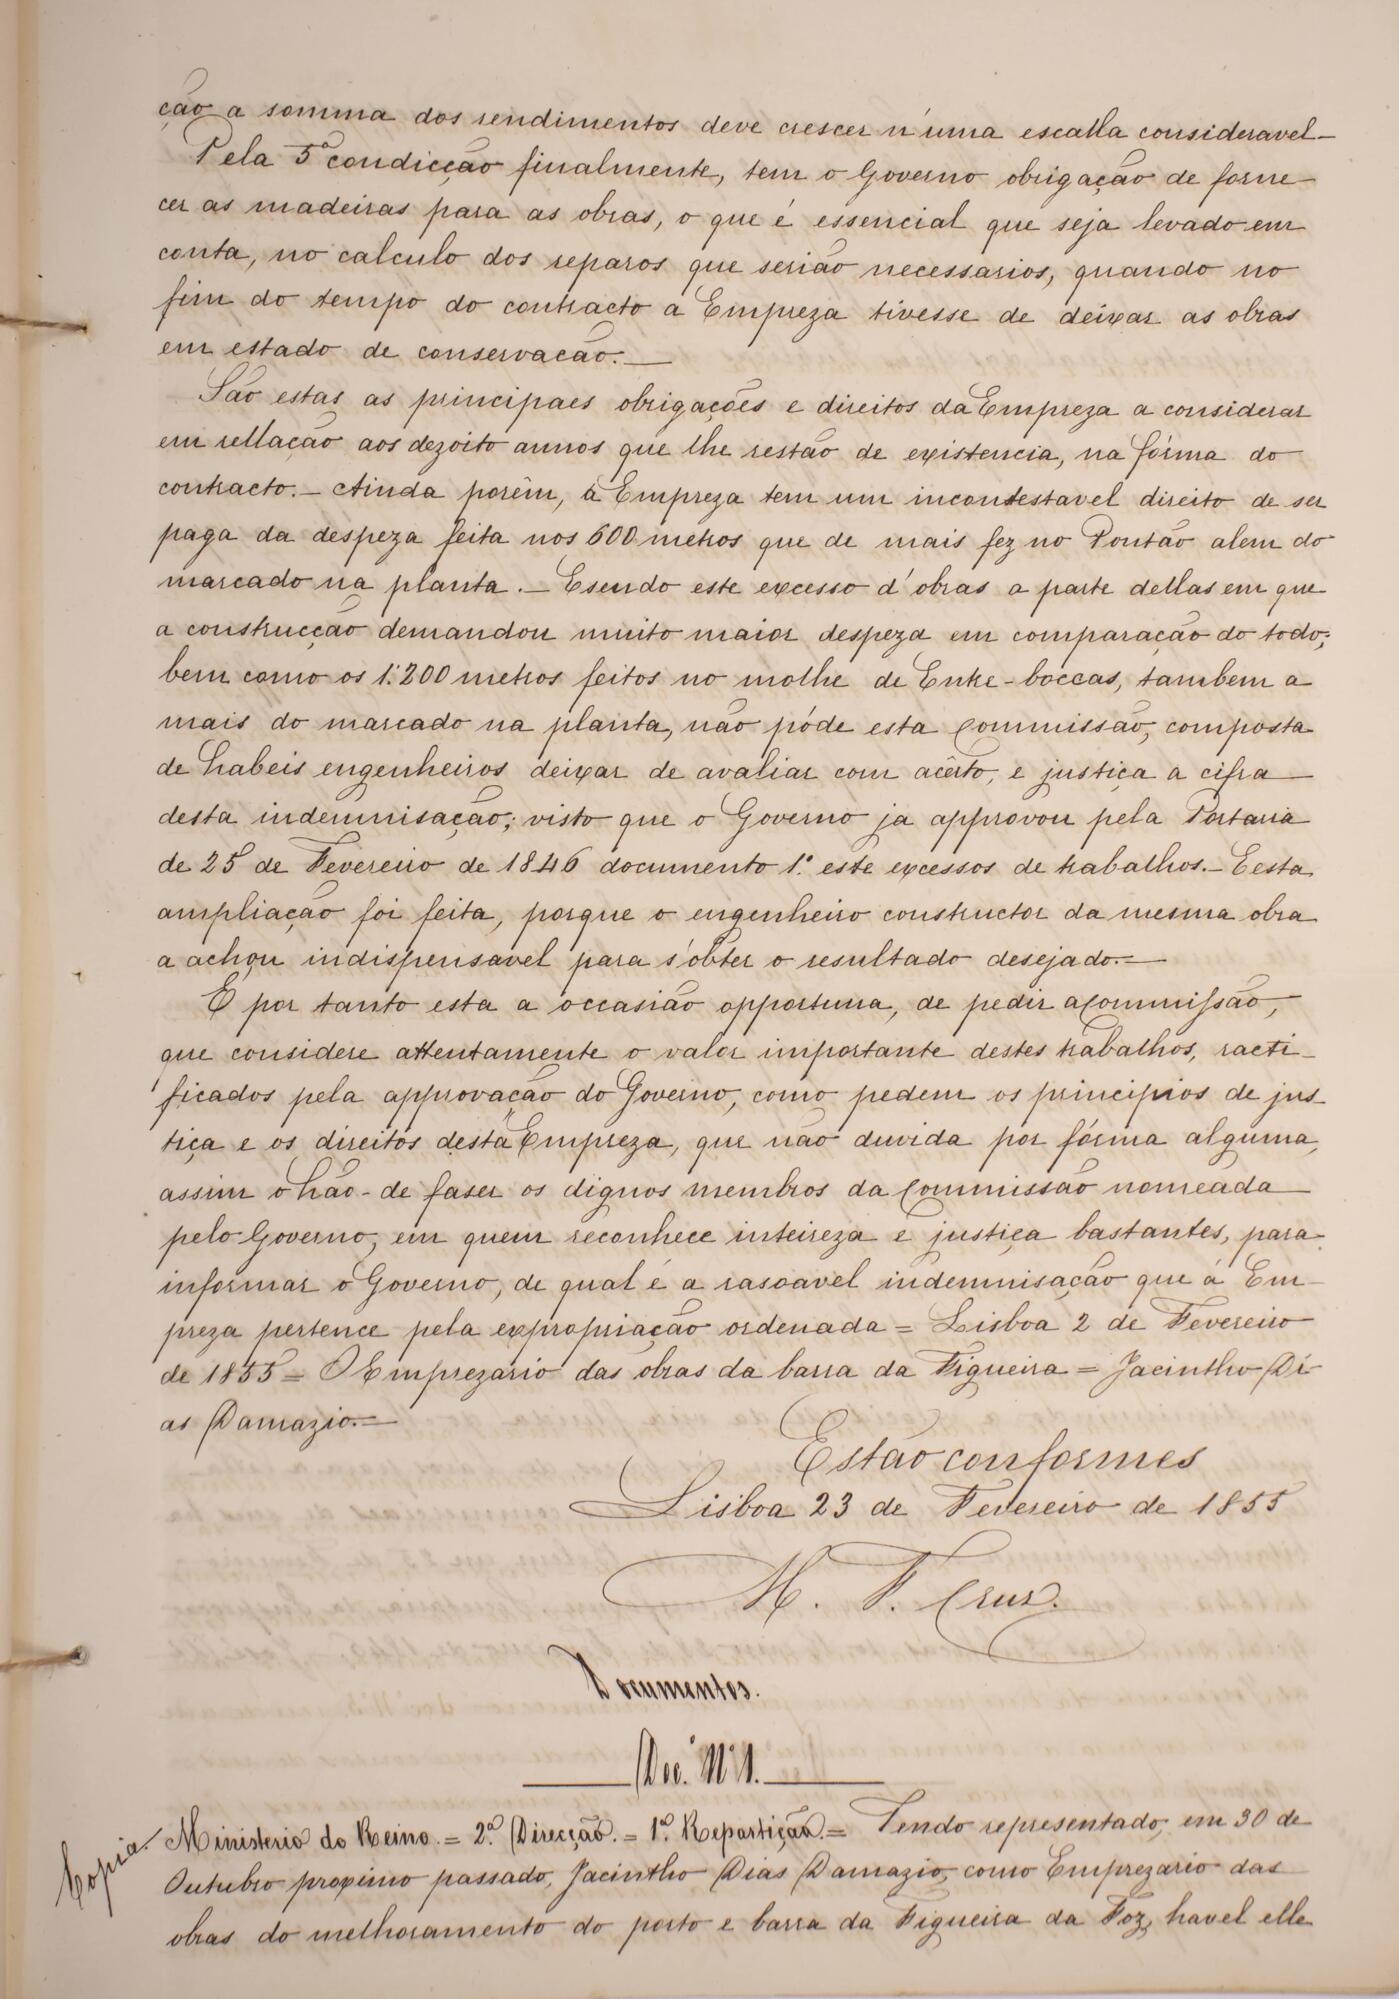 ção a somma dos rendimentos deve crescer n'uma escalla consideravel-
Pela 5ª condicção finalmente, tem o Governo obrigação de forne-
cer as madeiras para as obras, o que é essencial que seja levado em
conta, no calculo dos reparos que serião necessarios, quando no
fim do tempo do contracto a Empreza tivesse de deixar as obras
em estado de conservação.—
São estas as principaes obrigações e direitos da Empreza a considerar
em rellação aos dezoito annos que lhe restão de existencia, na fórma do
contracto.— Ainda porêm, a Empreza tem um incontestavel direito de ser
paga da despeza feita nos 600 metros que de mais fez no Pontão alem do
marcado na planta.— E sendo este excesso d'obras a parte dellas em que
a construcção demandou muito maior despeza em comparação do todo;
bem como os 1:200 metros feitos no molhe de Entre-boccas, tambem a
mais do marcado na planta, não póde esta Commissão, composta
de habeis engenheiros deixar de avaliar com acêrto, e justiça a cifra
desta indemnisação; visto que o Governo ja approvou pela Portaria
de 25 de Fevereiro de 1846 documento 1º este excessos de trabalhos.— E esta
ampliação foi feita, porque o engenheiro constructor da mesma obra
a achou indispensavel para s'obter o resultado desejado.—
É por tanto esta a occasião opportuna, de pedir a Commissão,
que considere attentamente o valor importante destes trabalhos, racti-
ficados pela approvação do Governo, como pedem os principios de jus-
tiça e os direitos desta Empreza, que não duvida por fórma alguma,
assim o hão-de faser os dignos membros da Commissão nomeada
pelo Governo, em quem reconhece inteireza e justiça bastantes, para
informar o Governo, de qual é a rasoavel indemnisação que á Em-
preza pertence pela expropriação ordenada = Lisboa 2 de Fevereiro
de 1855 = O Emprezario das obras da barra da Figueira = Jacintho Di-
as Damazio.—
Estão conformes
Lisboa 23 de Fevereiro de 1855
M. F. Cruz.
Documentos.
Doc.º Nº 1.
Copia. Ministerio do Reino. = 2.ª Direcção. = 1.ª Repartição. = Tendo representado, em 30 de
Outubro proximo passado, Jacintho Dias Damazio, como Emprezario das
obras do melhoramento do porto e barra da Figueira da Foz, havel elle